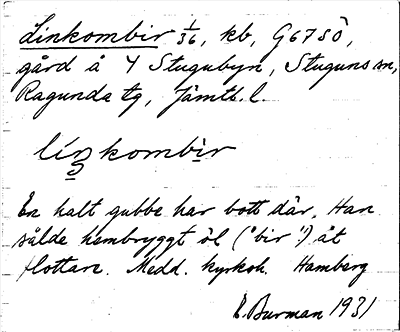 Linkombir 1/36, kb, G67SÖ,
gård å Y Stugubyn, Stuguns sn,
Ragunda tg, Jämtl. l.
líŋkombìr
En halt gubbe har bott där. Han
sålde hembryggt öl ("bir") åt
flottare. Medd. kyrkoh. Hamberg
E. Burman 1931